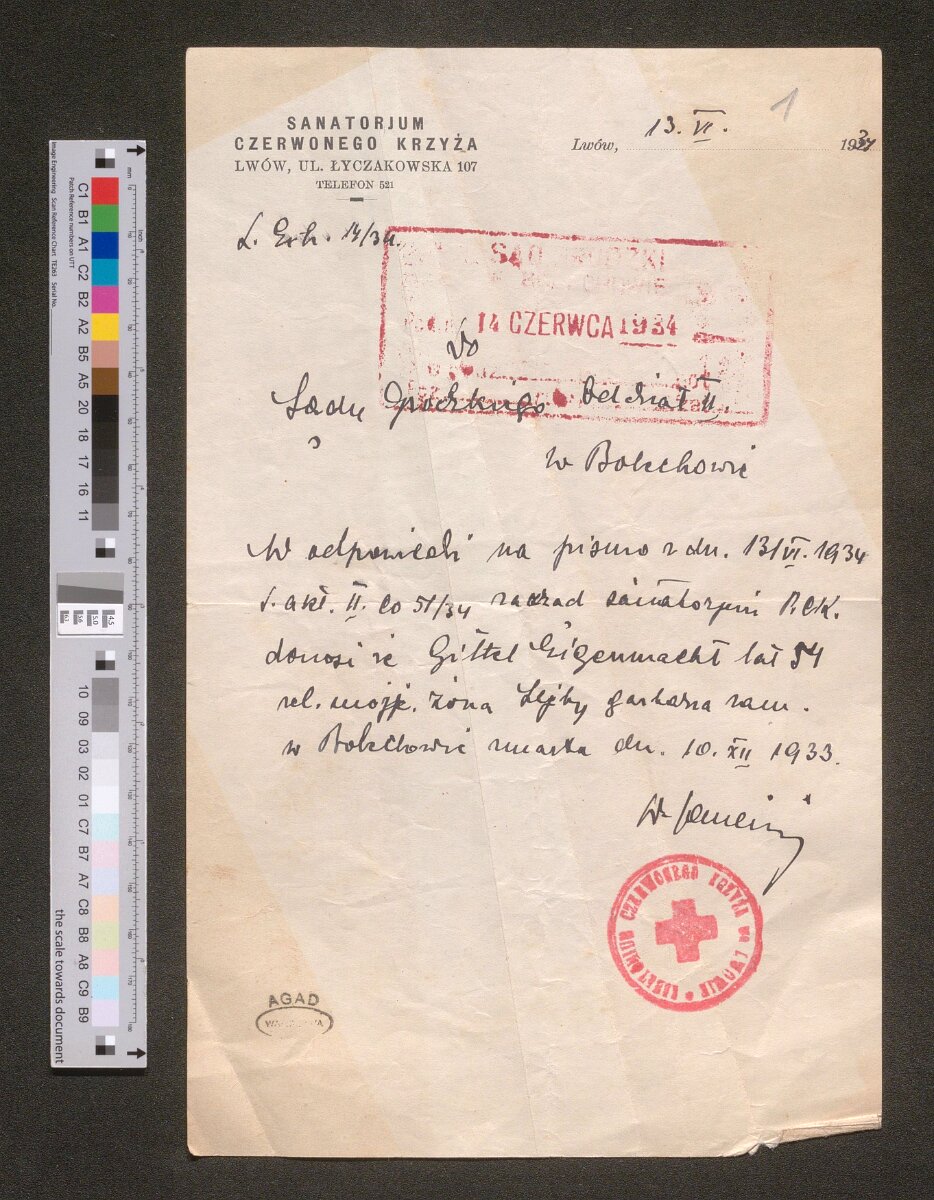 1
SANATORJUM
CZERWONEGO KRZYŻA
LWÓW, UL. ŁYCZAKOWSKA 107
TELEFON 521
Lwów, 13. VI. 1934
14/34.
SĄD GRODZKI
14 CZERWCA 1934
Do
Sądu Grodzkiego Oddział II.
w Bolechowie
W odpowiedzi na pismo z dn. 13/VI. 1934
l. akt. II. Co 51/34 zarząd sanatorjum P.CK.
donosi że Gittel Eigenmacht lat 54
rel. mojż. żona Lejby garbarza zam.
w Bolechowie zmarła dn. 10. XII 1933.
SANATORJUM CZERWONEGO KRZYŻA WE LWOWIE
AGAD
WARSZAWA
Image Engineering Scan Reference Chart TE263 Serial No.
Patch Reference numbers on UTT
C1 B1 A1 C2 B2 A2 B5 A5 20 18 17 16 11
10 09 03 02 01 C7 B7 A7 C8 B8 A8 C9 B9
the scale towards document
mm
inch